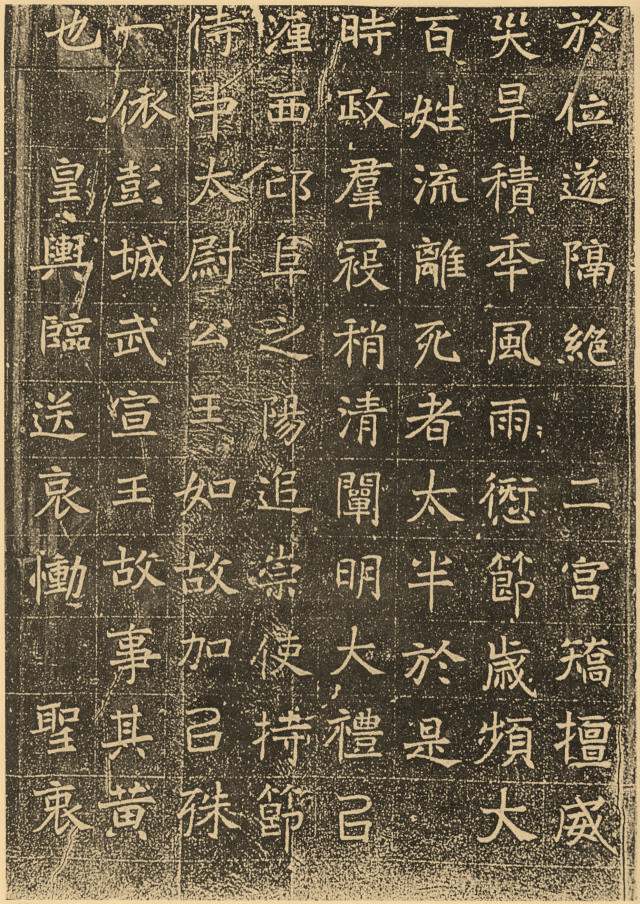 於位遂隔絶二宫矯擅威
災旱積秊風雨愆節歳頻大
百姓流離死者太半於是
時政羣寇稍清闡明大禮㠯
瀍西邙阜之陽追崇使持節
侍中太尉公王如故加㠯殊
一依彭城武宣王故事其黄
也皇輿臨送哀慟聖衷